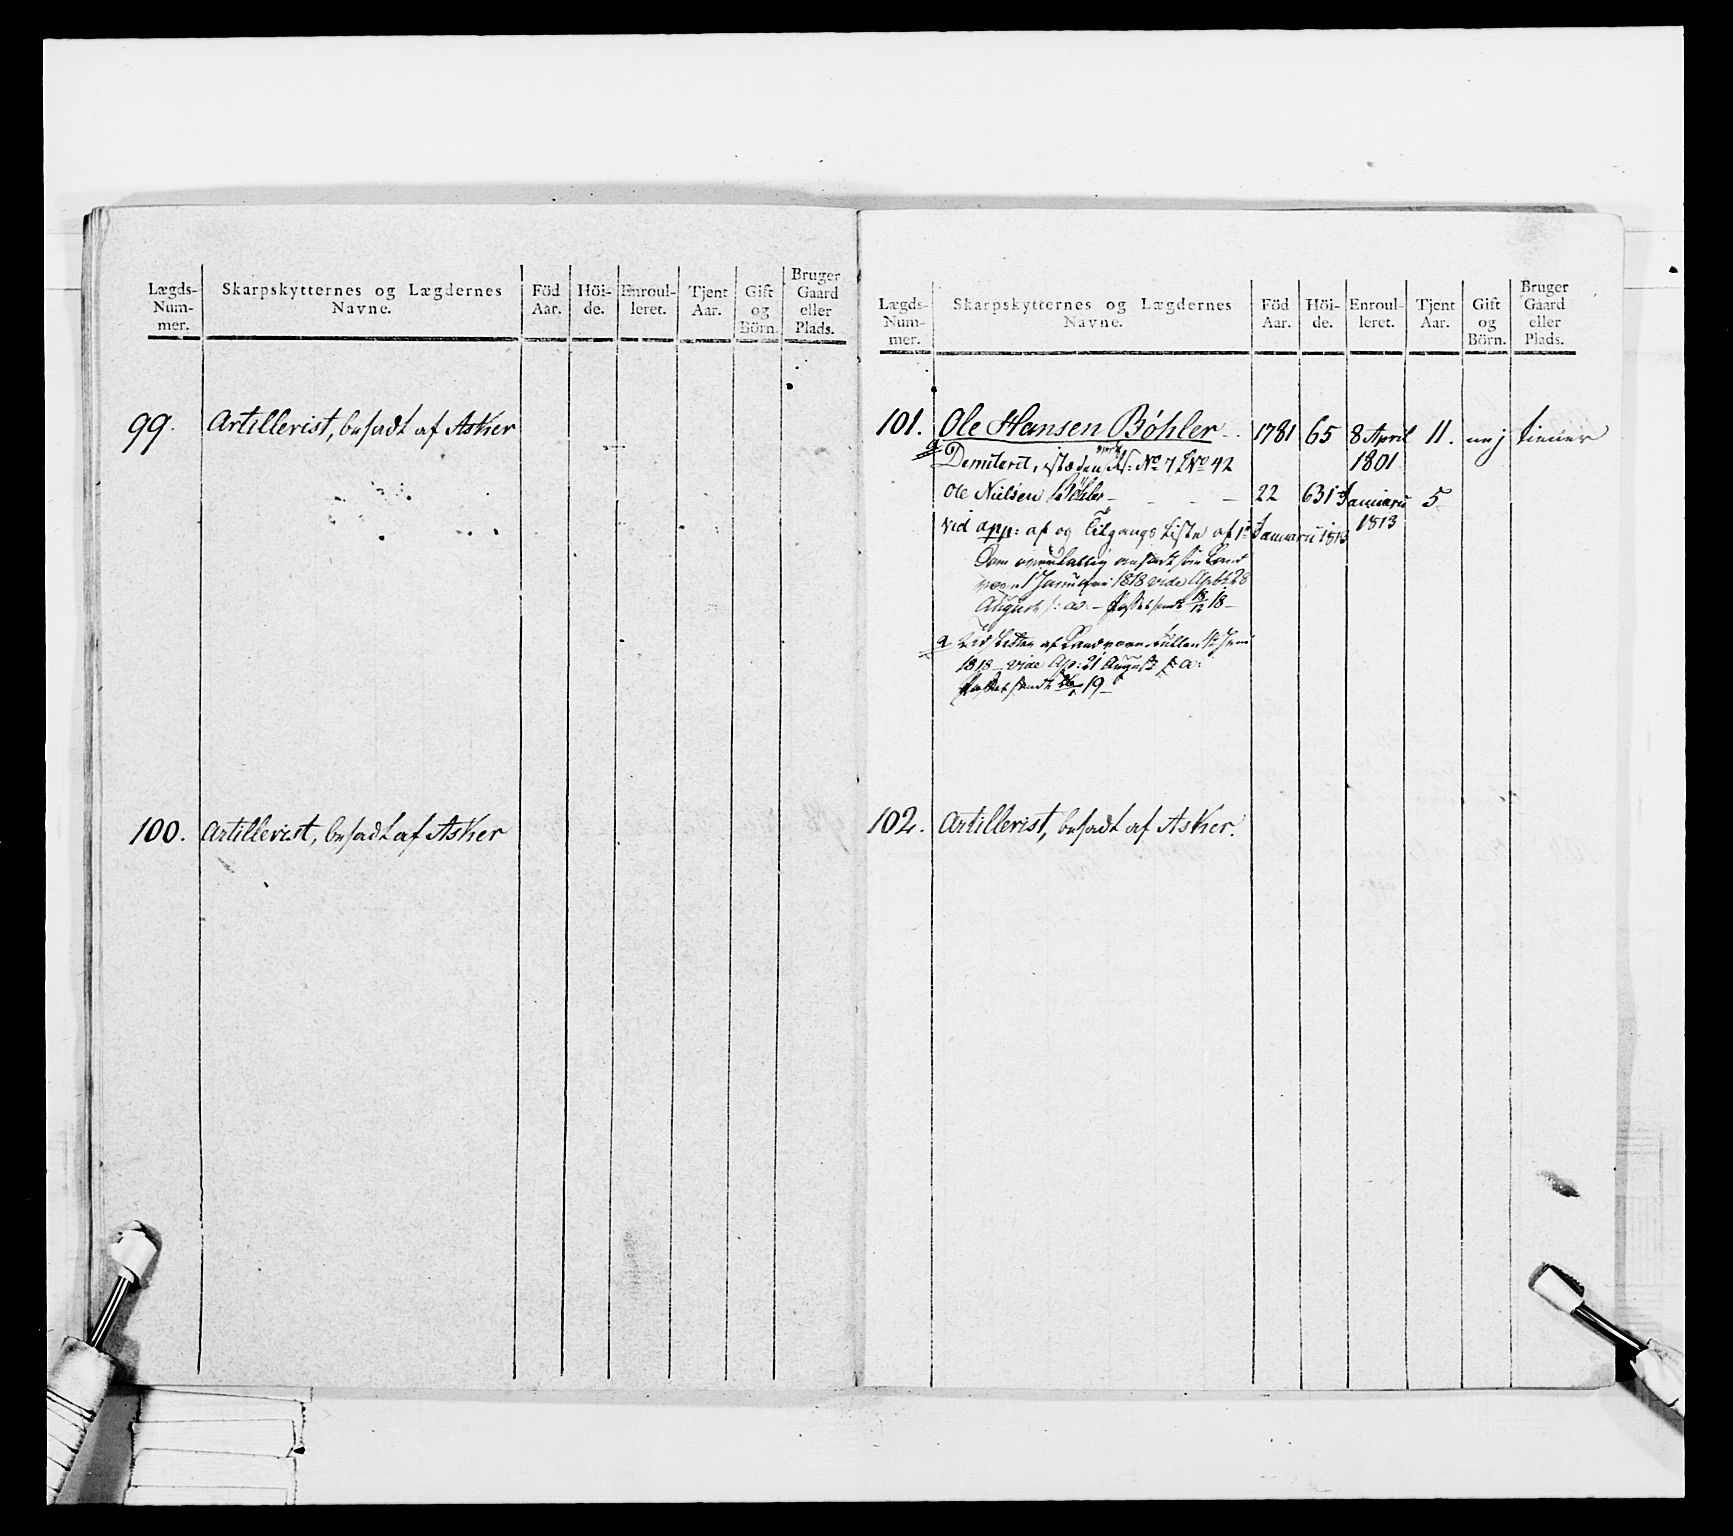 Lægds-
Num-
mer.
Skarpskytternes og Lægdernes
Navne.
Föd
Aar.
Höi-
de.
Enroul-
leret.
Tjent
Aar.
Gift
og
Börn.
Bruger
Gaard
eller
Plads.
99. Artillerist, besadt af Asker
100. Artillerist, besadt af Asker
Lægds-
Num-
mer.
Skarpskytternes og Lægdernes
Navne.
Föd
Aar.
Höi-
de.
Enroul-
leret.
Tjent
Aar.
Gift
og
Börn.
Bruger
Gaard
eller
Plads.
101. Ole Hansen Bøhler 1781 65 8 April 11. nej tiener
1801
Demiterit, No 42
Ole Nielsen Bøhler 22 63 1 Januarii 5
1813
vid app: af og Tilgangs Liste af 1 Januarii 1813
1818 vide
August 18/12 18
a
1818 vide Ap: 21 August
sendt 19
102. Artillerist, besadt af Asker.